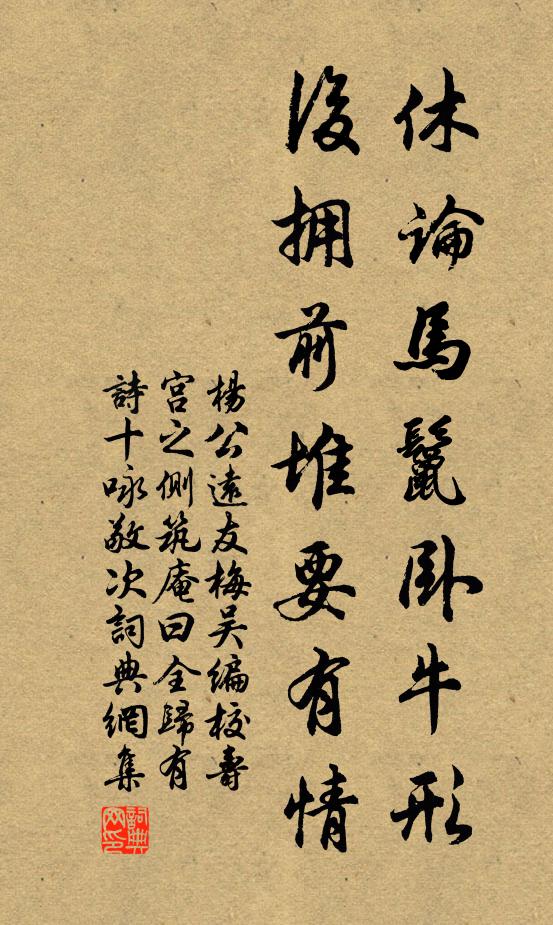 休論馬鬛卧牛形
後拥前堆要有情
楊公遠友梅吴编校壽
宫之側筑庵曰全歸有
詩十咏敬次詞典網集
詞典
网印